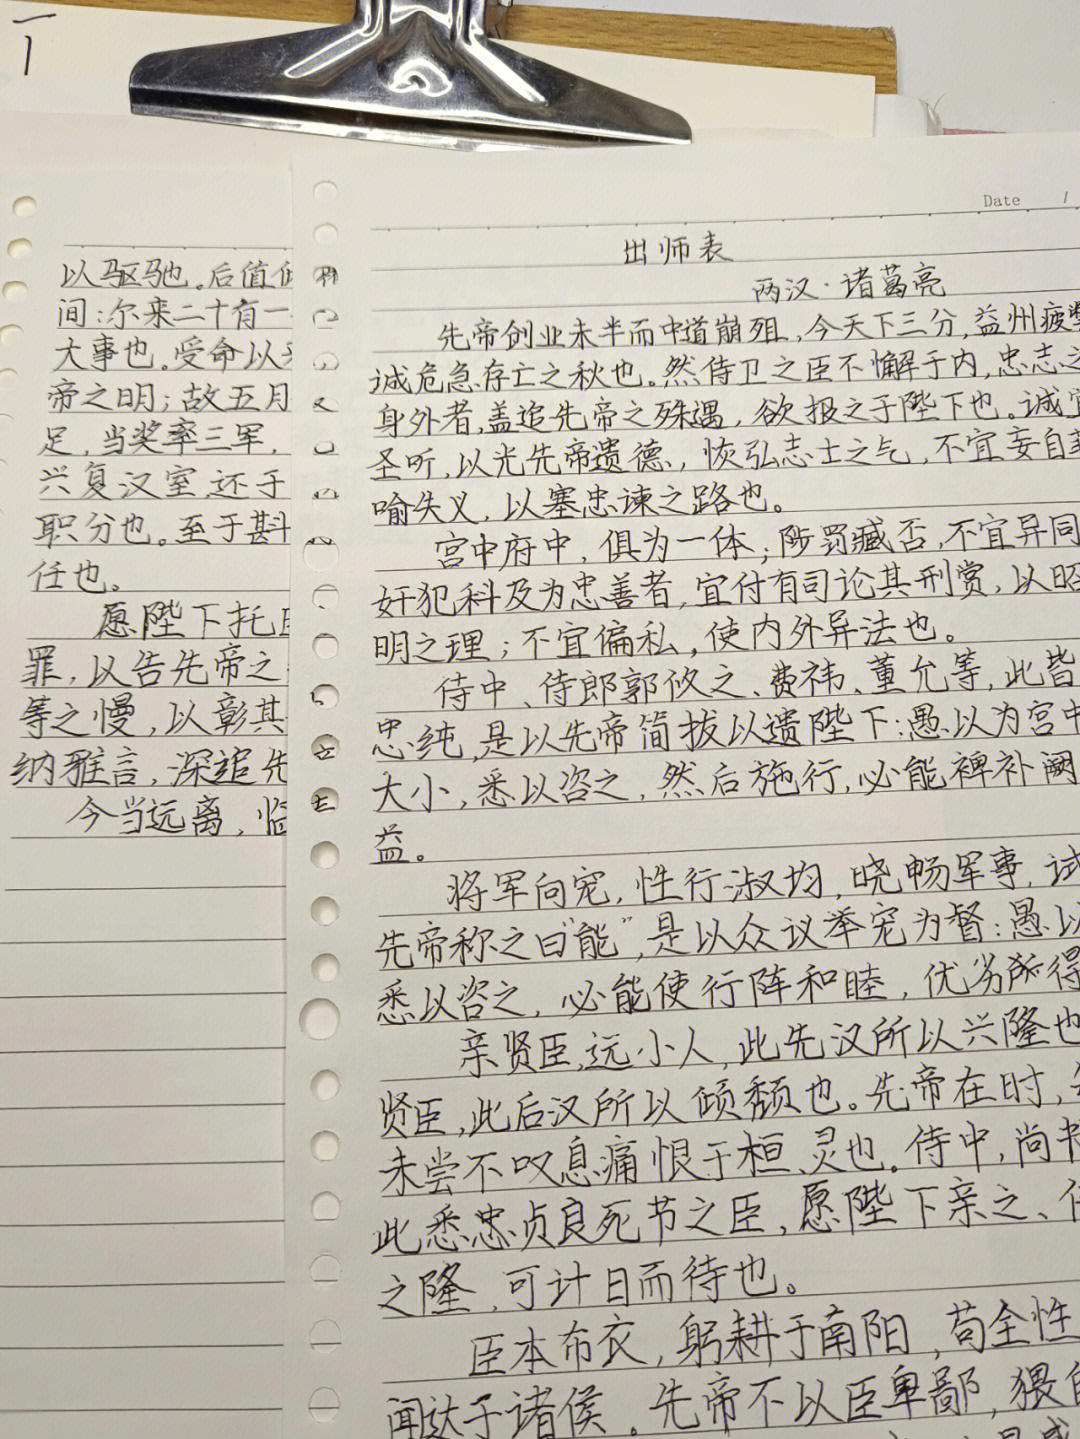 Date
出师表
两汉·诸葛亮
先帝创业未半而中道崩殂,今天下三分,益州疲
诚危急存亡之秋也。然侍卫之臣不懈于内,忠志
身外者,盖追先帝之殊遇,欲报之于陛下也。诚
圣听,以光先帝遗德,恢弘志士之气,不宜妄自
喻失义,以塞忠谏之路也。
宫中府中,俱为一体;陟罚臧否,不宜异同
奸犯科及为忠善者,宜付有司论其刑赏,以昭
明之理;不宜偏私,使内外异法也。
侍中、侍郎郭攸之、费祎、董允等,此皆
忠纯,是以先帝简拔以遗陛下:愚以为宫中
大小,悉以咨之,然后施行,必能裨补阙
益。
将军向宠,性行淑均,晓畅军事,试
先帝称之曰“能”,是以众议举宠为督:愚以
悉以咨之,必能使行阵和睦,优劣所得
亲贤臣,远小人,此先汉所以兴隆也
贤臣,此后汉所以倾颓也。先帝在时,
未尝不叹息痛恨于桓、灵也。侍中,尚书
此悉忠贞良死节之臣,愿陛下亲之、
之隆,可计日而待也。
臣本布衣,躬耕于南阳,苟全性
闻达于诸侯。先帝不以臣卑鄙,猥自
以驱驰。后值
间:尔来二十有一
大事也。受命以
帝之明;故五月
足,当奖率三军,
兴复汉室,还于
职分也。至于斟
任也。
愿陛下托
罪,以告先帝之
等之慢,以彰其
纳雅言,深追先
今当远离,临